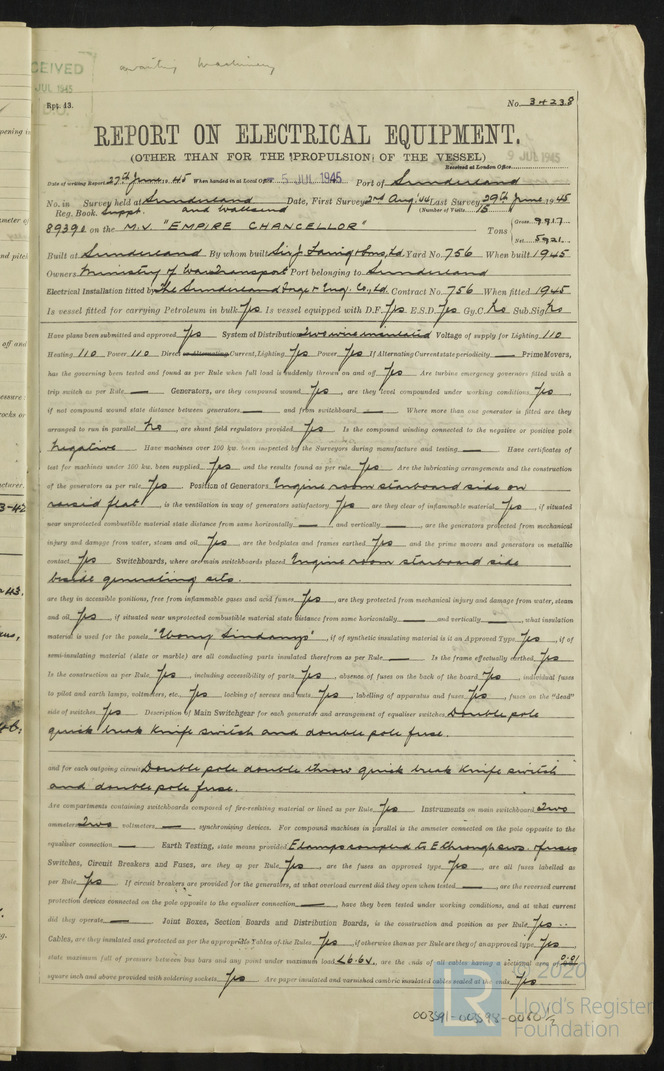 awaiting machinery
CEIVED
JUL 1945
Rpt. 13.
No. 34238
REPORT ON ELECTRICAL EQUIPMENT.
(OTHER THAN FOR THE PROPULSION OF THE VESSEL)
9 JUL 1945
Received at London Office
Date of writing Report 27th June 1945 When handed in at Local Office 5 JUL 1945 Port of Sunderland
No. in Survey held at Sunderland Date, First Survey 2nd Aug. 44 Last Survey 29th June 1945
Reg. Book. Suppt. and Wallsend (Number of Visits 15
89398 on the M.V. "EMPIRE CHANCELLOR" Tons { Gross 9917
Net 5921
Built at Sunderland By whom built Sir J. Laing & Sons, Ld Yard No. 756 When built 1945
Owners Ministry of War Transport Port belonging to Sunderland
Electrical Installation fitted by The Sunderland Forge & Eng. Co., Ld. Contract No. 756 When fitted 1945
Is vessel fitted for carrying Petroleum in bulk Yes Is vessel equipped with D.F. Yes E.S.D. Yes Gy.C. No Sub.Sig. No
Have plans been submitted and approved Yes System of Distribution Two wire insulated Voltage of supply for Lighting 110
Heating 110 Power 110 Direct or Alternating Current, Lighting Yes Power Yes If Alternating Current state periodicity — Prime Movers,
has the governing been tested and found as per Rule when full load is suddenly thrown on and off Yes Are turbine emergency governors fitted with a
trip switch as per Rule — Generators, are they compound wound Yes, are they level compounded under working conditions Yes,
if not compound wound state distance between generators — and from switchboard — Where more than one generator is fitted are they
arranged to run in parallel No, are shunt field regulators provided Yes Is the compound winding connected to the negative or positive pole
Negative Have machines over 100 kw. been inspected by the Surveyors during manufacture and testing — Have certificates of
test for machines under 100 kw. been supplied Yes and the results found as per rule Yes Are the lubricating arrangements and the construction
of the generators as per rule Yes Position of Generators Engine room starboard side on
raised flat, is the ventilation in way of generators satisfactory Yes are they clear of inflammable material Yes, if situated
near unprotected combustible material state distance from same horizontally — and vertically —, are the generators protected from mechanical
injury and damage from water, steam and oil Yes, are the bedplates and frames earthed Yes and the prime movers and generators in metallic
contact Yes Switchboards, where are main switchboards placed Engine room starboard side
beside generating sets.
are they in accessible positions, free from inflammable gases and acid fumes Yes, are they protected from mechanical injury and damage from water, steam
and oil Yes, if situated near unprotected combustible material state distance from same horizontally — and vertically —, what insulation
material is used for the panels "Ebony Sindanyo", if of synthetic insulating material is it an Approved Type Yes, if of
semi-insulating material (slate or marble) are all conducting parts insulated therefrom as per Rule — Is the frame effectually earthed Yes
Is the construction as per Rule Yes, including accessibility of parts Yes, absence of fuses on the back of the board Yes, individual fuses
to pilot and earth lamps, voltmeters, etc., Yes locking of screws and nuts Yes, labelling of apparatus and fuses Yes, fuses on the "dead"
side of switches Yes Description of Main Switchgear for each generator and arrangement of equaliser switches Double pole
quick break knife switch and double pole fuse.
and for each outgoing circuit Double pole double throw quick break knife switch
and double pole fuse.
Are compartments containing switchboards composed of fire-resisting material or lined as per Rule Yes Instruments on main switchboard Two
ammeters Two voltmeters — synchronising devices. For compound machines in parallel is the ammeter connected on the pole opposite to the
equaliser connection — Earth Testing, state means provided E lamps coupled to E through sws. & fuses
Switches, Circuit Breakers and Fuses, are they as per Rule Yes, are the fuses an approved type Yes, are all fuses labelled as
per Rule Yes If circuit breakers are provided for the generators, at what overload current did they open when tested —, are the reversed current
protection devices connected on the pole opposite to the equaliser connection —, have they been tested under working conditions, and at what current
did they operate — Joint Boxes, Section Boards and Distribution Boards, is the construction and position as per Rule Yes
Cables, are they insulated and protected as the appropriate Tables of the Rules Yes, if otherwise than as per Rule are they of an approved type Yes
state maximum fall of pressure between bus bars and any point under maximum load <6.6v., are the ends of all cables having a sectional area of 0.01
square inch and above provided with soldering sockets Yes Are paper insulated and varnished cambric insulated cables sealed at the ends Yes
© 2020
Lloyd's Register
Foundation
LR
003591-003598-0060 1/2